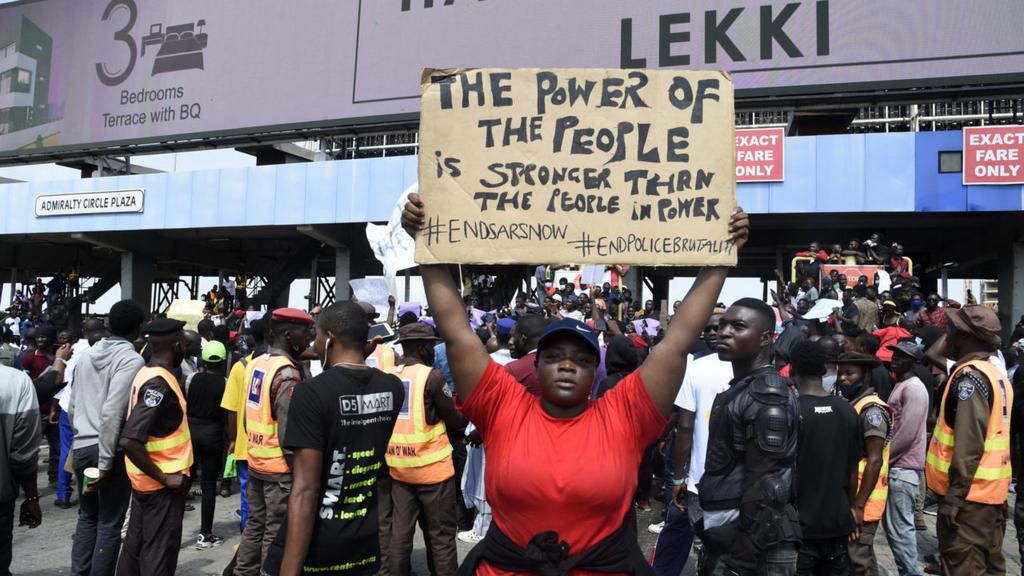 3
Bedrooms
Terrace with BQ
LEKKI
ADMIRALTY CIRCLE PLAZA
EXACT
FARE
ONLY
EXACT
FARE
ONLY
THE POWER OF
THE PEOPLE
is STRONGER THAN
THE PEOPLE IN POWER
#ENDSARSNOW #ENDPOLICEBRUTALITY
D5MART
The intelligent